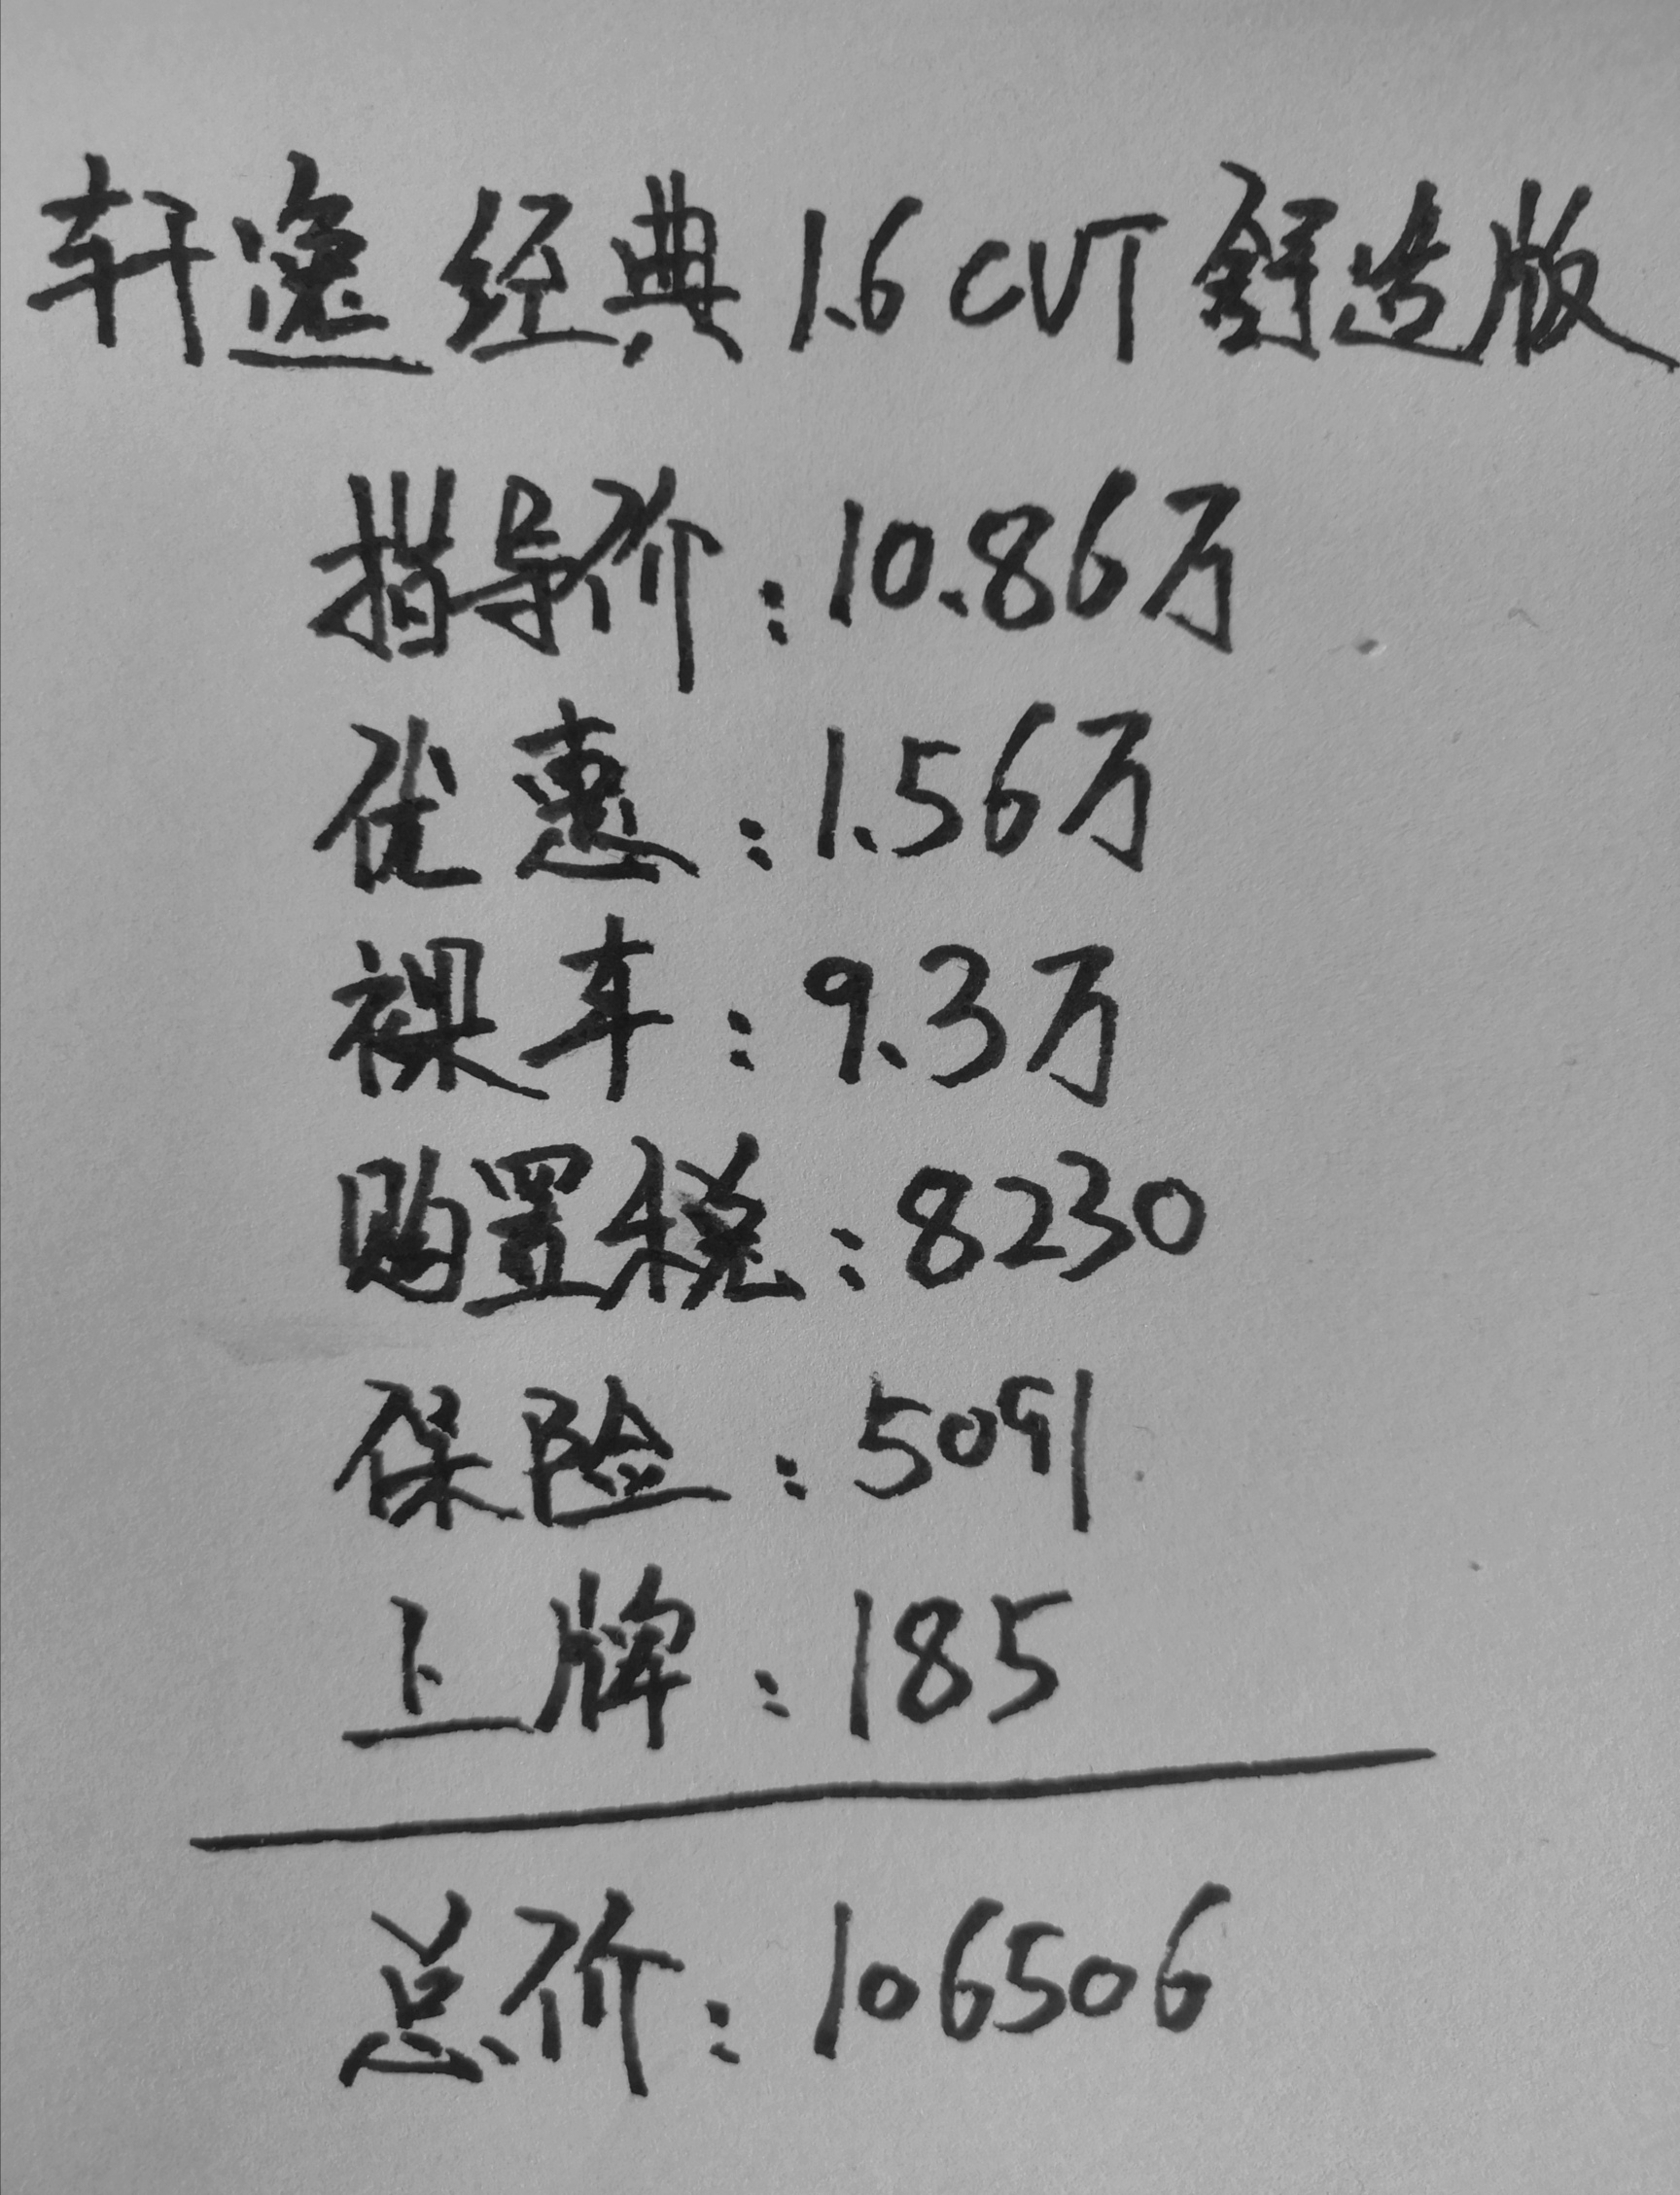 轩逸经典1.6CVT舒适版
指导价:10.86万
优惠:1.56万
裸车:9.3万
购置税:8230
保险:5091
上牌:185
总价:106506